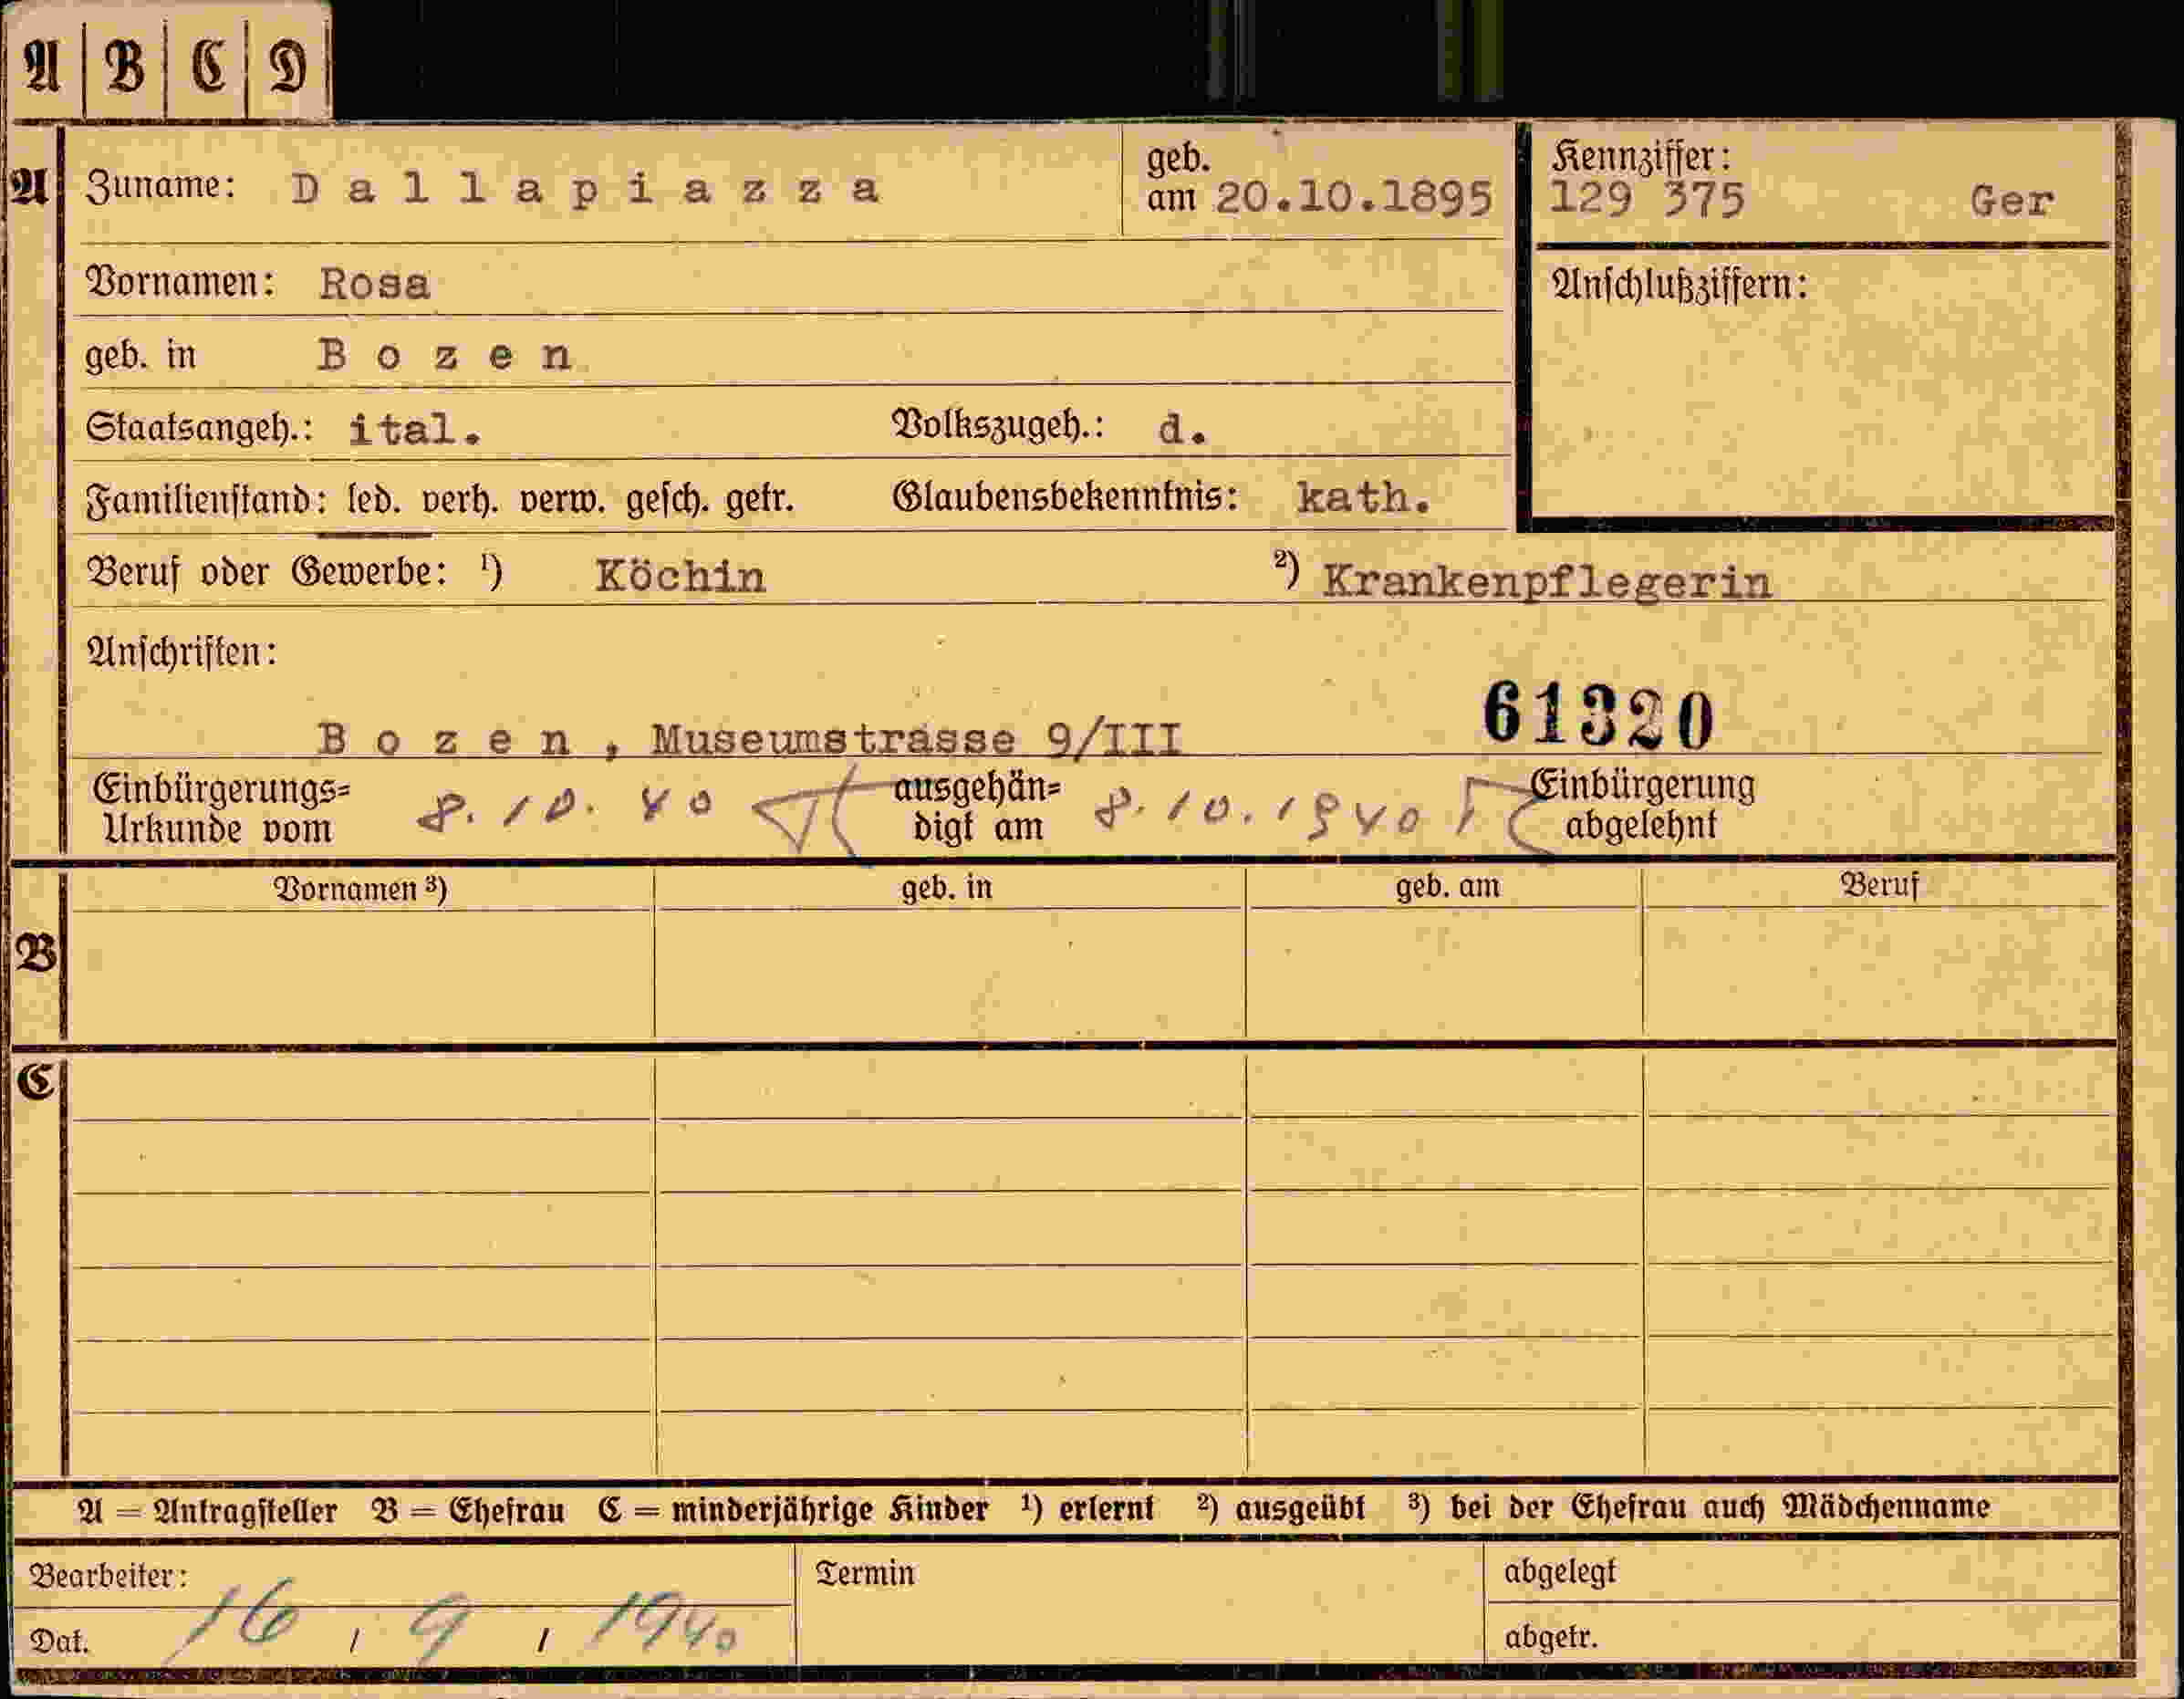 A B C D
A Zuname: Dallapiazza geb. am 20.10.1895
Kennziffer: 129 375 Ger
Vornamen: Rosa
Anschlußziffern:
geb. in Bozen
Staatsangeh.: ital. Volkszugeh.: d.
Familienstand: led. verh. verw. gesch. getr. Glaubensbekenntnis: kath.
Beruf oder Gewerbe: 1) Köchin 2) Krankenpflegerin
Anschriften:
Bozen, Museumstrasse 9/III 61320
Einbürgerungs= ausgehän= Einbürgerung
Urkunde vom 8.10.40 digt am 8.10.1940 abgelehnt
Vornamen 3) geb. in geb. am Beruf
B
C
A = Antragsteller B = Ehefrau C = minderjährige Kinder 1) erlernt 2) ausgeübt 3) bei der Ehefrau auch Mädchenname
Bearbeiter: Termin abgelegt
Dat. 16/9/1940 abgetr.